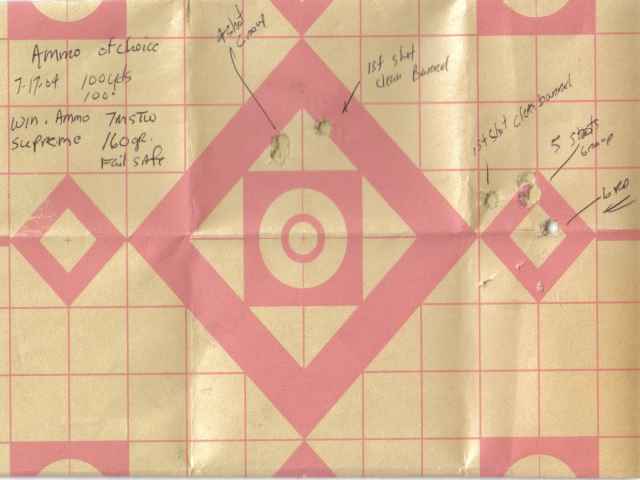 Ammo of choice
7-17-04 100yds
100°
Win. Ammo 7mSTW
Supreme 160gr.
Fail Safe
4 shot
Group
1st shot
Clean Barrel
1st shot clean barrel
5 shots
Group